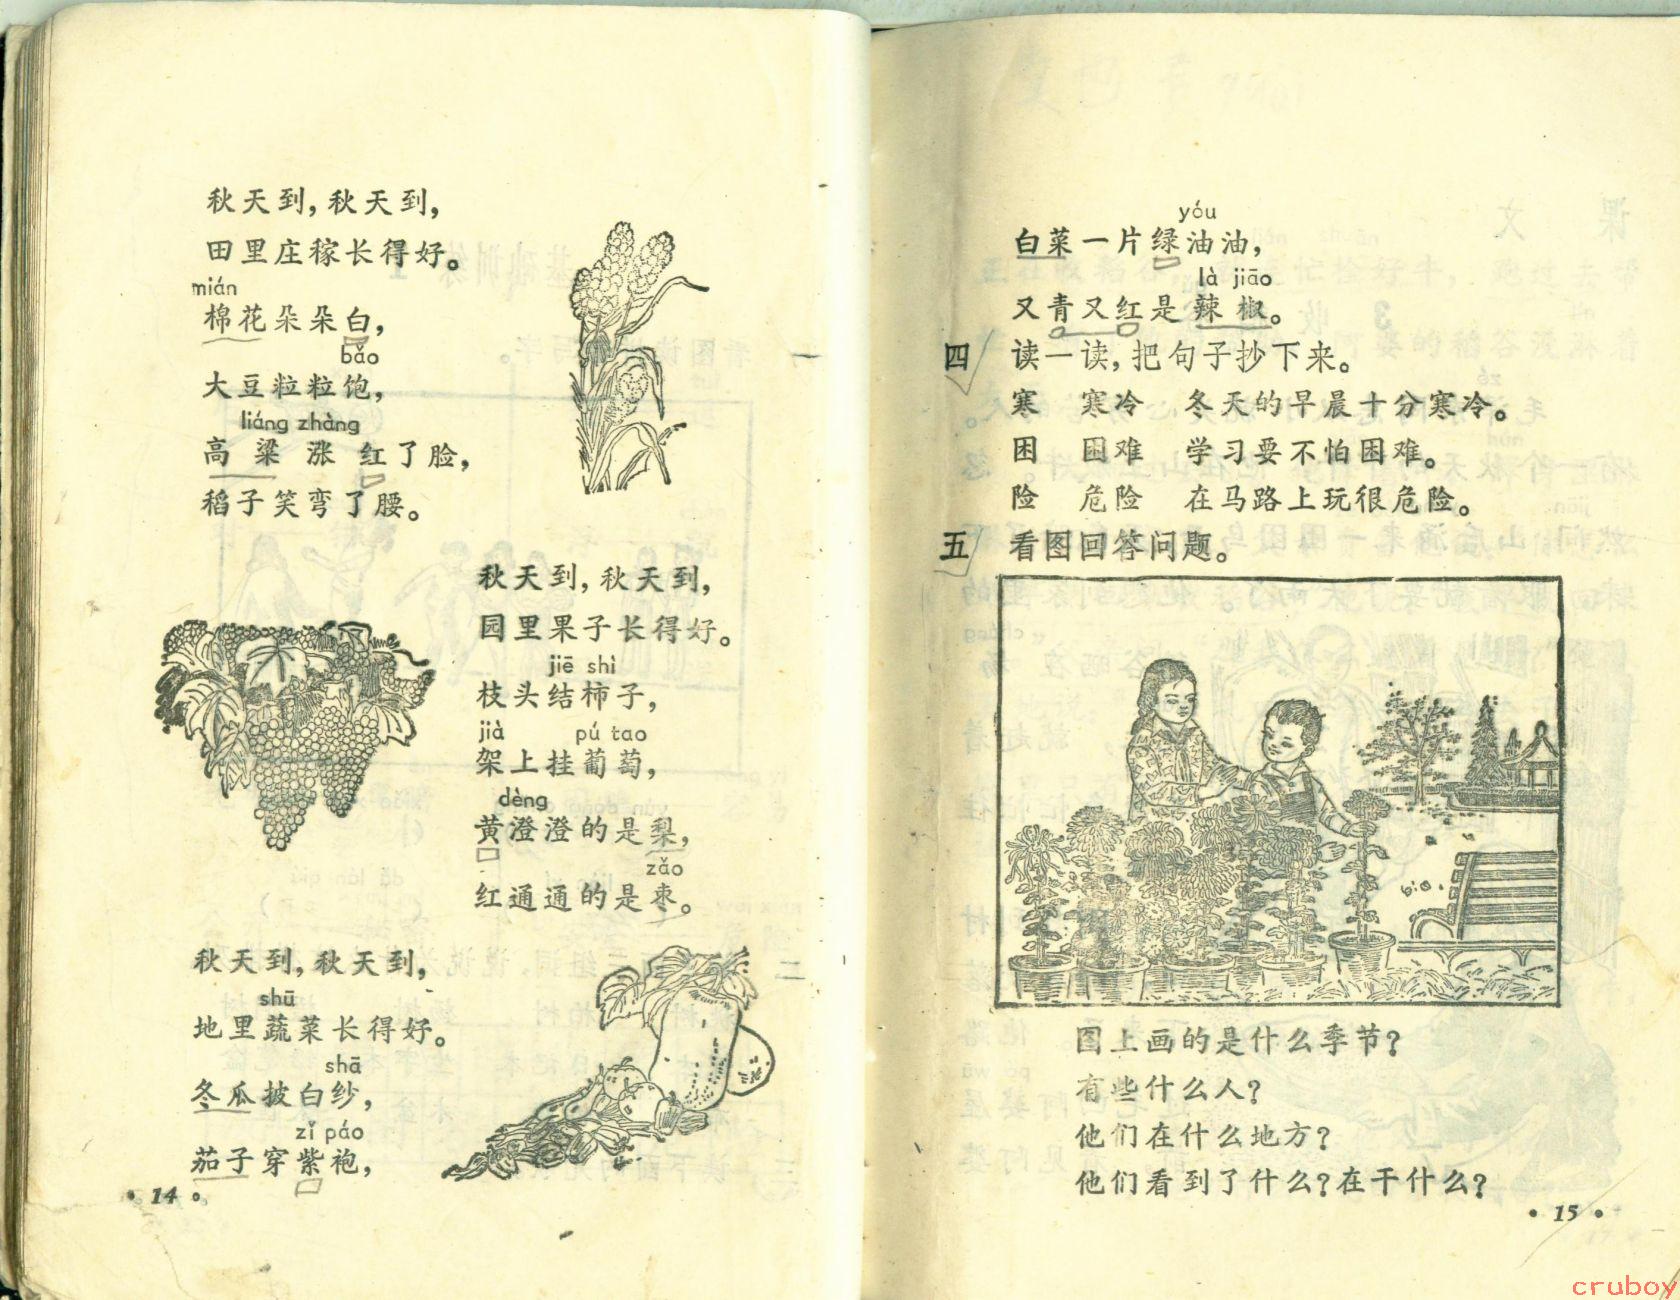 秋天到，秋天到，
田里庄稼长得好。
mián
棉花朵朵白，
bǎo
大豆粒粒饱，
liáng zhàng
高粱涨红了脸，
稻子笑弯了腰。
秋天到，秋天到，
园里果子长得好。
jiē shì
枝头结柿子，
jià pú tao
架上挂葡萄，
dèng
黄澄澄的是梨，
zǎo
红通通的是枣。
秋天到，秋天到，
shū
地里蔬菜长得好。
shā
冬瓜披白纱，
zǐ páo
茄子穿紫袍，
• 14 •
yóu
白菜一片绿油油，
là jiāo
又青又红是辣椒。
四 读一读，把句子抄下来。
寒 寒冷 冬天的早晨十分寒冷。
困 困难 学习要不怕困难。
险 危险 在马路上玩很危险。
五 看图回答问题。
图上画的是什么季节？
有些什么人？
他们在什么地方？
他们看到了什么？在干什么？
• 15 •
cruboy